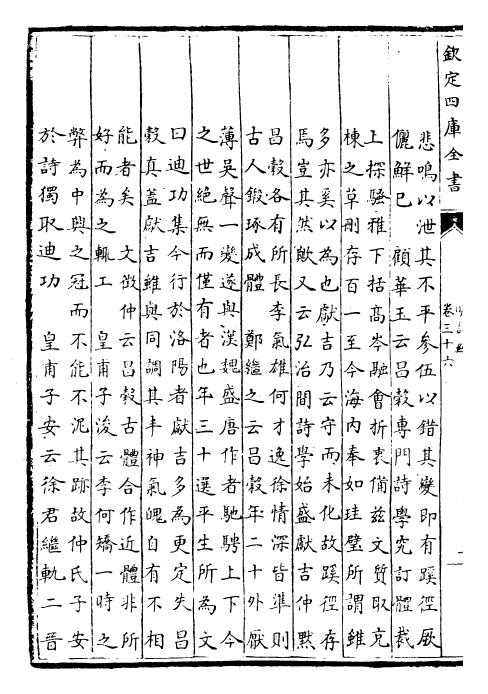 欽定四庫全書
卷三十六
悲鳴以泄其不平參伍以錯其變即有蹊徑厥
儷鮮已　顧華玉云昌榖專門詩學究訂體裁
上探騷雅下括高岑融會折衷備茲文質取充
棟之草刪存百一至今海內奉如珪璧所謂雖
多亦奚以為也獻吉乃云守而未化故蹊徑存
焉豈其然歟又云弘治間詩學始盛獻吉仲默
昌榖各有所長李氣雄何才逸徐情深皆準則
古人鍜琢成體　鄭繼之云昌榖年二十外厭
薄吳聲一變遂與漢魏盛唐作者馳騁上下今
之世絶無而僅有者也年三十選平生所為文
曰迪功集今行於洛陽者獻吉多為更定失昌
榖真蓋獻吉雖與同調其丰神氣魄自有不相
能者矣　文徴仲云昌榖古體合作近體非所
好而為之輒工　皇甫子浚云李何矯一時之
弊為中興之冠而不能不泥其跡故仲氏子安
於詩獨取迪功　皇甫子安云徐君繼軌二晉